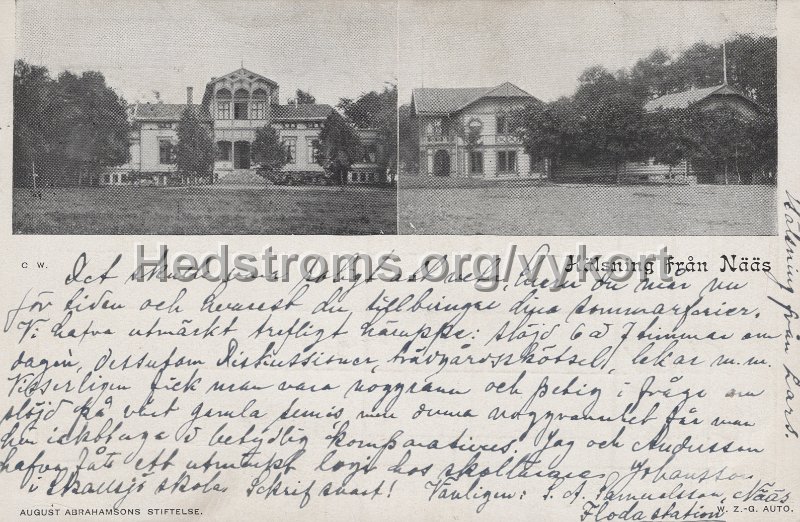 C W.
Hedstroms.org/vykort
Hälsning från Nääs
Det skulle vara roligt att veta, huru du mår nu
för tiden och hvarest du tillbringar dina sommarferier.
Vi hafva utmärkt trefligt häruppe: slöjd 6 à 7 timmar om
dagen, dessutom Diskussioner, trädgårdsskötsel, lekar m. m.
Visserligen fick man vara noggrann och petig i fråga om
slöjd på vårt gamla semis, men denna noggrannhet får man
här i betydlig komparativus. Jag och Andersson
hafva fått ett utmärkt logis hos skolläraren Johansson
i skola. Skrif snart! Vänligen: J. A. Samuelsson, Nääs
Floda station
Hälsning från Lars
AUGUST ABRAHAMSONS STIFTELSE.
W. Z.-G. AUTO.